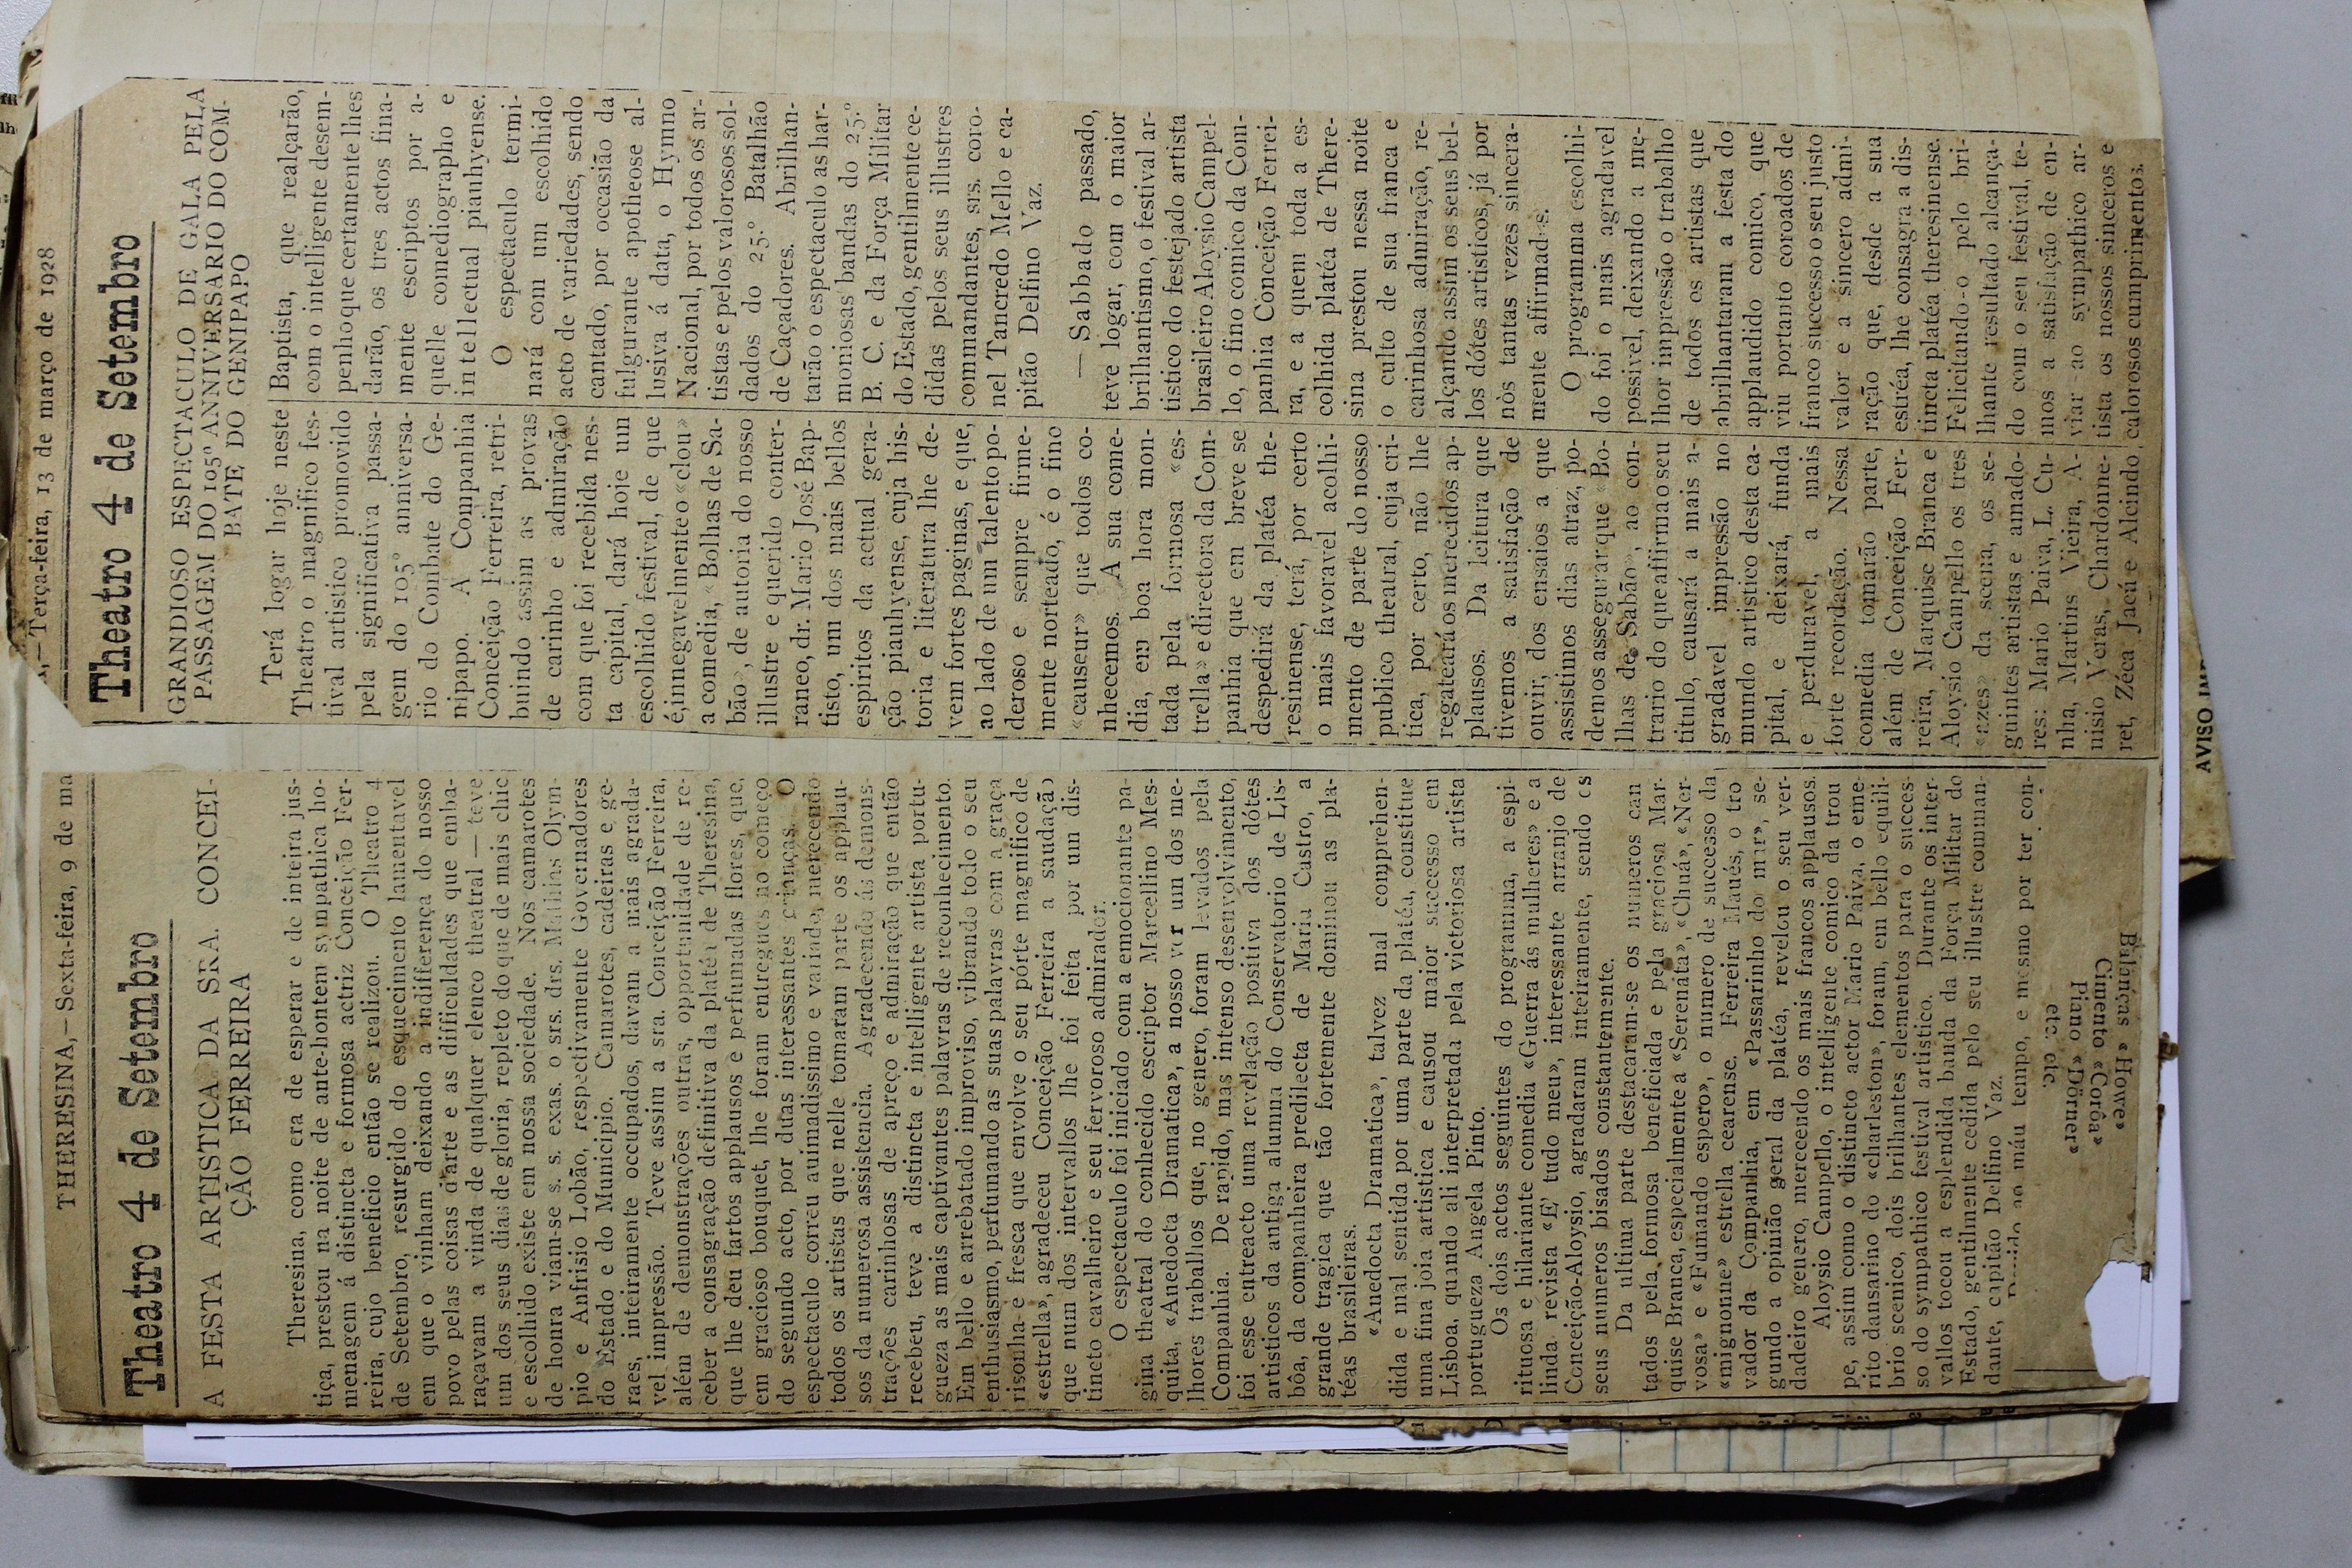 THERESINA,—Sexta-feira, 9 de ma
Theatro 4 de Setembro
A FESTA ARTISTICA DA SRA. CONCEI-
ÇÃO FERREIRA
Theresina, como era de esperar e de inteira jus-
tiça, prestou na noite de ante-hontem sympathica ho-
menagem á distincta e formosa actriz Conceição Fer-
reira, cujo beneficio então se realizou. O Theatro 4
de Setembro, resurgido do esquecimento lamentavel
em que o vinham deixando a indifferença do nosso
povo pelas coisas d'arte e as difficuldades que emba-
raçavam a vinda de qualquer elenco theatral — teve
um dos seus dias de gloria, repleto do que de mais chic
e escolhido existe em nossa sociedade. Nos camarotes
de honra viam-se s. s. exas. o srs. drs. Mathias Olym-
pio e Anfrisio Lobão, respectivamente Governadores
do Estado e do Municipio. Camarotes, cadeiras e ge-
raes, inteiramente occupados, davam a mais agrada-
vel impressão. Teve assim a sra. Conceição Ferreira,
além de demonstrações outras, opportunidade de re-
ceber a consagração definitiva da platéa de Theresina,
que lhe deu fartos applausos e perfumadas flores, que,
em gracioso bouquet, lhe foram entregues no começo
do segundo acto, por duas interessantes crianças. O
espectaculo correu animadissimo e variado, merecendo
todos os artistas que nelle tomaram parte os applau-
sos da numerosa assistencia. Agradecendo ás demons-
trações carinhosas de apreço e admiração que então
recebeu, teve a distincta e intelligente artista portu-
gueza as mais captivantes palavras de reconhecimento.
Em bello e arrebatado improviso, vibrando todo o seu
enthusiasmo, perfumando as suas palavras com a graça
risonha e fresca que envolve o seu pórte magnifico de
«estrella», agradeceu Conceição Ferreira a saudação
que num dos intervallos lhe foi feita por um dis-
tincto cavalheiro e seu fervoroso admirador.
O espectaculo foi iniciado com a emocionante pa-
gina theatral do conhecido escriptor Marcellino Mes-
quita, «Anedocta Dramatica», a nosso ver um dos me-
lhores trabalhos que, no genero, foram levados pela
Companhia. De rapido, mas intenso desenvolvimento,
foi esse entreacto uma revelação positiva dos dótes
artisticos da antiga alumna do Conservatorio de Lis-
bôa, da companheira predilecta de Maria Castro, a
grande tragica que tão fortemente dominou as pla-
téas brasileiras.
«Anedocta Dramatica», talvez mal comprehen-
dida e mal sentida por uma parte da platéa, constitue
uma fina joia artistica e causou maior successo em
Lisboa, quando ali interpretada pela victoriosa artista
portugueza Angela Pinto.
Os dois actos seguintes do programma, a espi-
rituosa e hilariante comedia «Guerra ás mulheres» e a
linda revista «E' tudo meu», interessante arranjo de
Conceição-Aloysio, agradaram inteiramente, sendo os
seus numeros bisados constantemente.
Da ultima parte destacaram-se os numeros can
tados pela formosa beneficiada e pela graciosa Mar-
quise Branca, especialmente a «Serenata», «Chuá», «Ner-
vosa» e «Fumando espero», o numero de successo da
«mignonne» estrella cearense. Ferreira Maués, o tro
vador da Companhia, em «Passarinho do mar», se-
gundo a opinião geral da platéa, revelou o seu ver-
dadeiro genero, merecendo os mais francos applausos.
Aloysio Campello, o intelligente comico da trou
pe, assim como o distincto actor Mario Paiva, o eme-
rito dansarino do «charleston», foram, em bello equili-
brio scenico, dois brilhantes elementos para o succes-
so do sympathico festival artistico. Durante os inter-
vallos tocou a esplendida banda da Força Militar do
Estado, gentilmente cedida pelo seu illustre comman-
dante, capitão Delfino Vaz.
ao máu tempo, e mesmo por ter con-
Balanças «Howe»
Cimento «Corôa»
Piano «Dörner»
etc. etc.
—Terça-feira, 13 de março de 1928
Theatro 4 de Setembro
GRANDIOSO ESPECTACULO DE GALA PELA
PASSAGEM DO 105º ANNIVERSARIO DO COM-
BATE DO GENIPAPO
Terá logar hoje neste
Theatro o magnifico fes-
tival artistico promovido
pela significativa passa-
gem do 105º anniversa-
rio do Combate do Ge-
nipapo. A Companhia
Conceição Ferreira, retri-
buindo assim as provas
de carinho e admiração
com que foi recebida nes-
ta capital, dará hoje um
escolhido festival, de que
é, innegavelmente o «clou»
a comedia, «Bolhas de Sa-
bão», de autoria do nosso
illustre e querido conter-
raneo, dr. Mario José Bap-
tisto, um dos mais bellos
espiritos da actual gera-
ção piauhyense, cuja his-
toria e literatura lhe de-
vem fortes paginas, e que,
ao lado de um talento po-
deroso e sempre firme-
mente norteado, é o fino
«causeur» que todos co-
nhecemos. A sua come-
dia, em boa hora mon-
tada pela formosa «es-
trella» e directora da Com-
panhia que em breve se
despedirá da platéa the-
resinense, terá, por certo
o mais favoravel acolhi-
mento de parte do nosso
publico theatral, cuja cri-
tica, por certo, não lhe
regateará os merecidos ap-
plausos. Da leitura que
tivemos a satisfação de
ouvir, dos ensaios a que
assistimos dias atraz, po-
demos assegurar que «Bo-
lhas de Sabão», ao con-
trario do que affirma o seu
titulo, causará a mais a-
gradavel impressão no
mundo artistico desta ca-
pital, e deixará, funda
e perduravel, a mais
forte recordação. Nessa
comedia tomarão parte,
além de Conceição Fer-
reira, Marquise Branca e
Aloysio Campello os tres
«azes» da scena, os se-
guintes artistas e amado-
res: Mario Paiva, L. Cu-
nha, Martins Vieira, A-
nisio Veras, Chardonne-
ret, Zéca Jacú e Alcindo
Baptista, que realçarão,
com o intelligente desem-
penho que certamente lhes
darão, os tres actos fina-
mente escriptos por a-
quelle comediographo e
intellectual piauhyense.
O espectaculo termi-
nará com um escolhido
acto de variedades, sendo
cantado, por occasião da
fulgurante apotheose al-
lusiva á data, o Hymno
Nacional, por todos os ar-
tistas e pelos valorosos sol-
dados do 25.º Batalhão
de Caçadores. Abrilhan-
tarão o espectaculo as har-
moniosas bandas do 25.º
B. C. e da Força Militar
do Estado, gentilmente ce-
didas pelos seus illustres
commandantes, srs. coro-
nel Tancredo Mello e ca-
pitão Delfino Vaz.
—Sabbado passado,
teve logar, com o maior
brilhantismo, o festival ar-
tistico do festejado artista
brasileiro Aloysio Campel-
lo, o fino comico da Com-
panhia Conceição Ferrei-
ra, e a quem toda a es-
colhida platéa de There-
sina prestou nessa noite
o culto de sua franca e
carinhosa admiração, re-
alçando assim os seus bel-
los dótes artisticos, já por
nòs tantas vezes sincera-
mente affirmados.
O programma escolhi-
do foi o mais agradavel
possivel, deixando a me-
lhor impressão o trabalho
de todos os artistas que
abrilhantaram a festa do
applaudido comico, que
viu portanto coroados de
franco successo o seu justo
valor e a sincero admi-
ração que, desde a sua
estréa, lhe consagra a dis-
tincta platéa theresinense.
Felicitando-o pelo bri-
lhante resultado alcança-
do com o seu festival, te-
mos a satisfação de en-
viar ao sympathico ar-
tista os nossos sinceros e
calorosos cumprimentos.